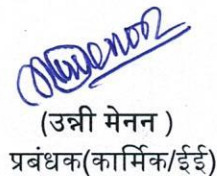 (उन्नी मेनन )
प्रबंधक(कार्मिक/ईई)